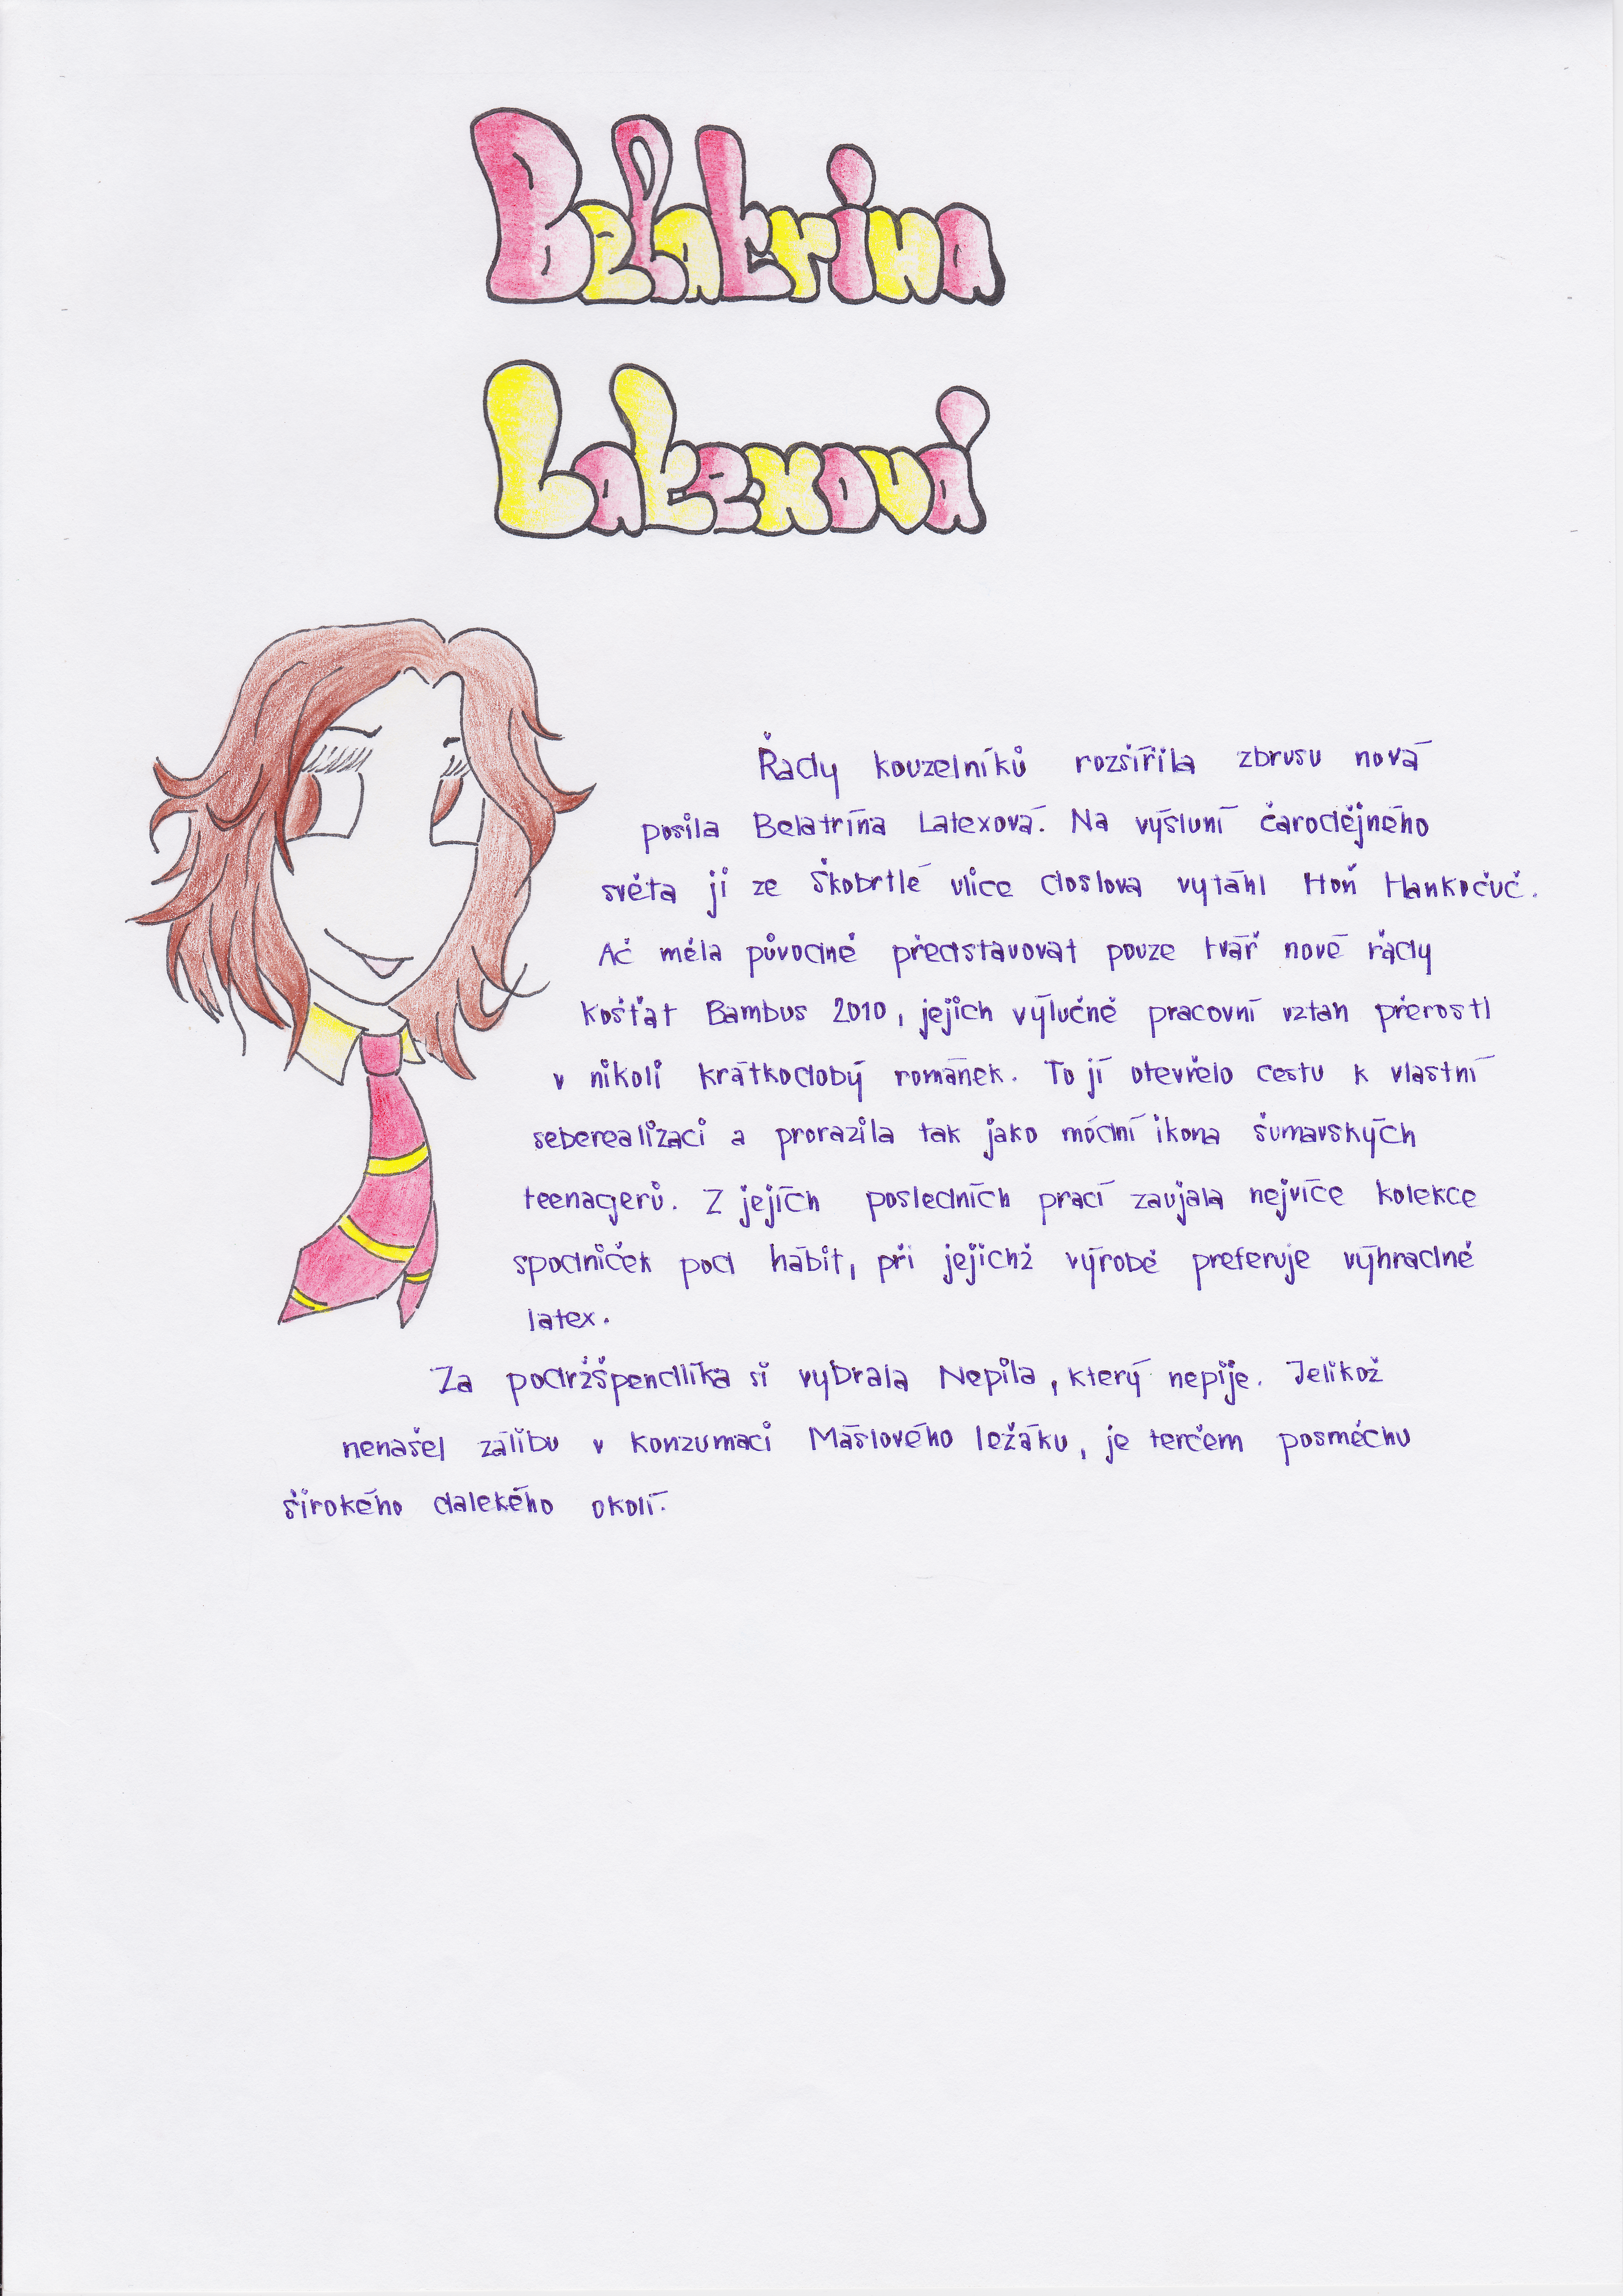 Belatrina
Latexová
Řady kouzelníků rozšířila zbrusu nová
posila Belatrína Latexová. Na výsluní čarodějného
světa ji ze Škobrtlé ulice doslova vytáhl Hoň Hankočuč.
Ač měla původně představovat pouze tvář nové řady
košťat Bambus 2010, jejich výlučně pracovní vztah přerostl
v nikoli krátkodobý románek. To jí otevřelo cestu k vlastní
seberealizaci a prorazila tak jako módní ikona šumavských
teenagerů. Z jejích posledních prací zaujala nejvíce kolekce
spodniček pod hábit, při jejichž výrobě preferuje výhradně
latex.
Za podržšpendlíka si vybrala Nepila, který nepije. Jelikož
nenašel zálibu v konzumaci Máslového ležáku, je terčem posměchu
širokého dalekého okolí.